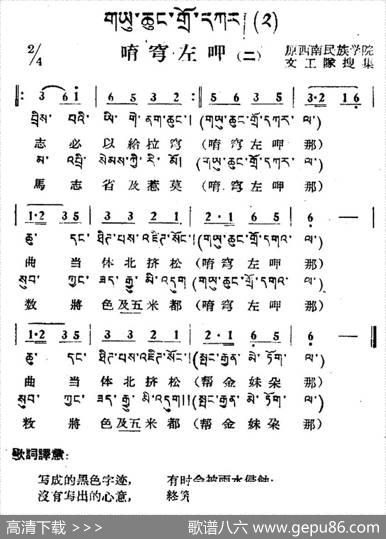 གཡུ་ཆུང་གྲོ་དཀར། (༢)
唷穹左呷 (二)
2/4
原西南民族学院
文工隊搜集
3 6 1 | 6 5 3 2 | 5 6 3 5 | 3·2 1 6
བྲིས་པའི་ ཡི་གེ་ནག་ཆུང་། (གཡུ་ཆུང་གྲོ་དཀར་ ལ་)
志 必 以給拉穹 (唷穹左呷 那)
མ་འབྲི་ སེམས་ཀྱི་རི་མོ། (གཡུ་ཆུང་གྲོ་དཀར་ ལ་)
馬志 省及惹莫 (唷穹左呷 那)
1·2 3 5 | 3 3 2 1 | 2·1 6 5 | 6 —
ཆུ་ དང་ ཐིར་པས་འཇིར་སོང་། (གཡུ་ཆུང་གྲོ་དཀར་ ལ་)
曲 当 体北挤松 (唷穹左呷 那)
སུབ་ ཀྱང་ ཟད་རྒྱུ་མི་འདུག (གཡུ་ཆུང་གྲོ་དཀར་ ལ་)
数 將 色及五米都 (唷穹左呷 那)
1·2 3 5 | 3 3 2 1 | 2·1 6 5 | 6 —
ཆུ་ དང་ ཐིར་པས་འཇིར་སོང་། (སྤང་རྒྱན་མེ་ཏོག་ ལ་)
曲 当 体北挤松 (帮金妹朵 那)
སུབ་ ཀྱང་ ཟད་རྒྱུ་མི་འདུག། (སྤང་རྒྱན་མེ་ཏོག་ ལ་)
敉 將 色及五米都 (帮金妹朵 那)
歌詞譯意:
写成的黑色字迹, 有时会被雨水
沒有写出的心意, 終
高清下载 >>> 歌谱八六 www.gepu86.com